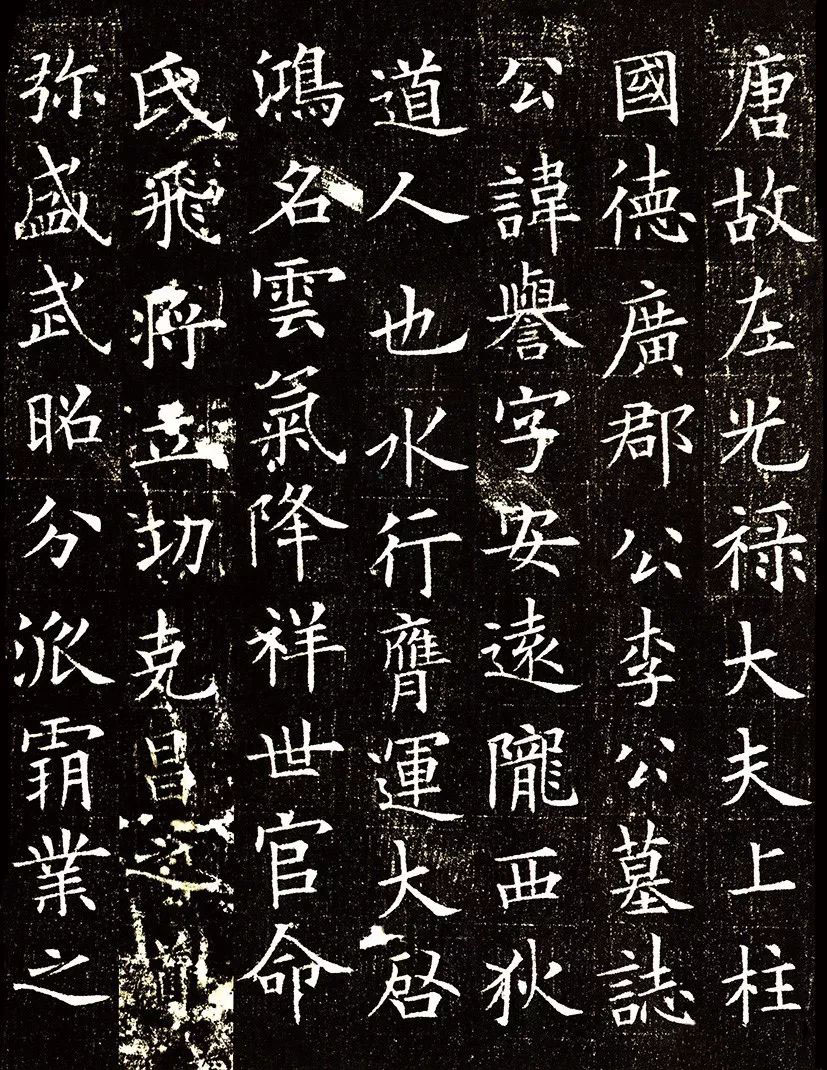 唐故左光禄大夫上柱
國德廣郡公李公墓誌
公諱譽字安遠隴西狄
道人也水行膺運大啓
鴻名雲氣降祥世官命
氏飛將立切克昌之
弥盛武昭分派霸業之